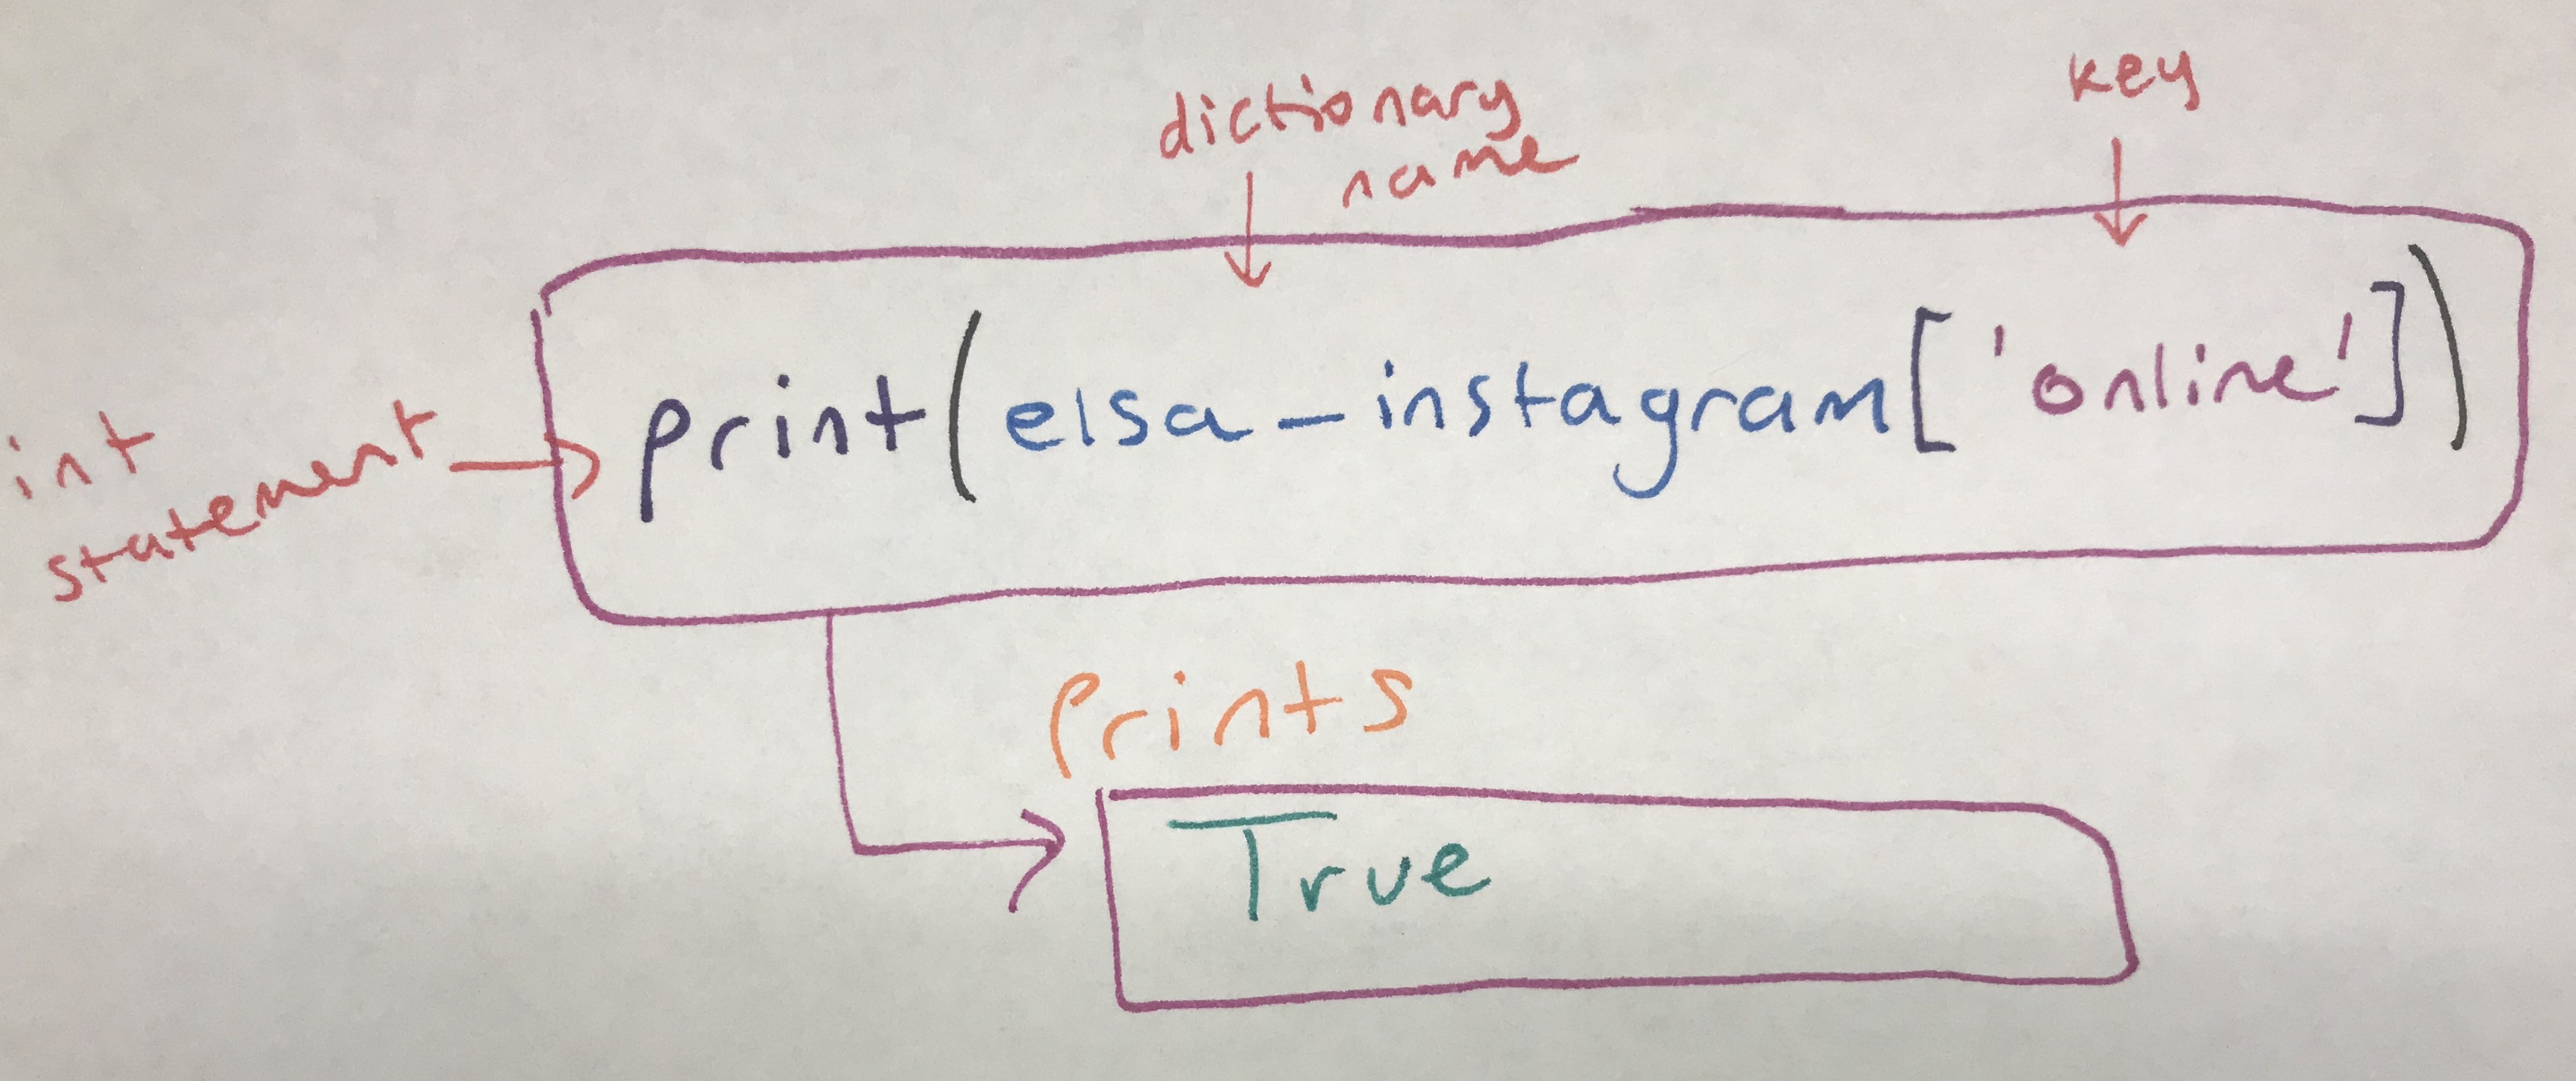 dictionary
name
key
int
statement
print(elsa_instagram['online'])
prints
True